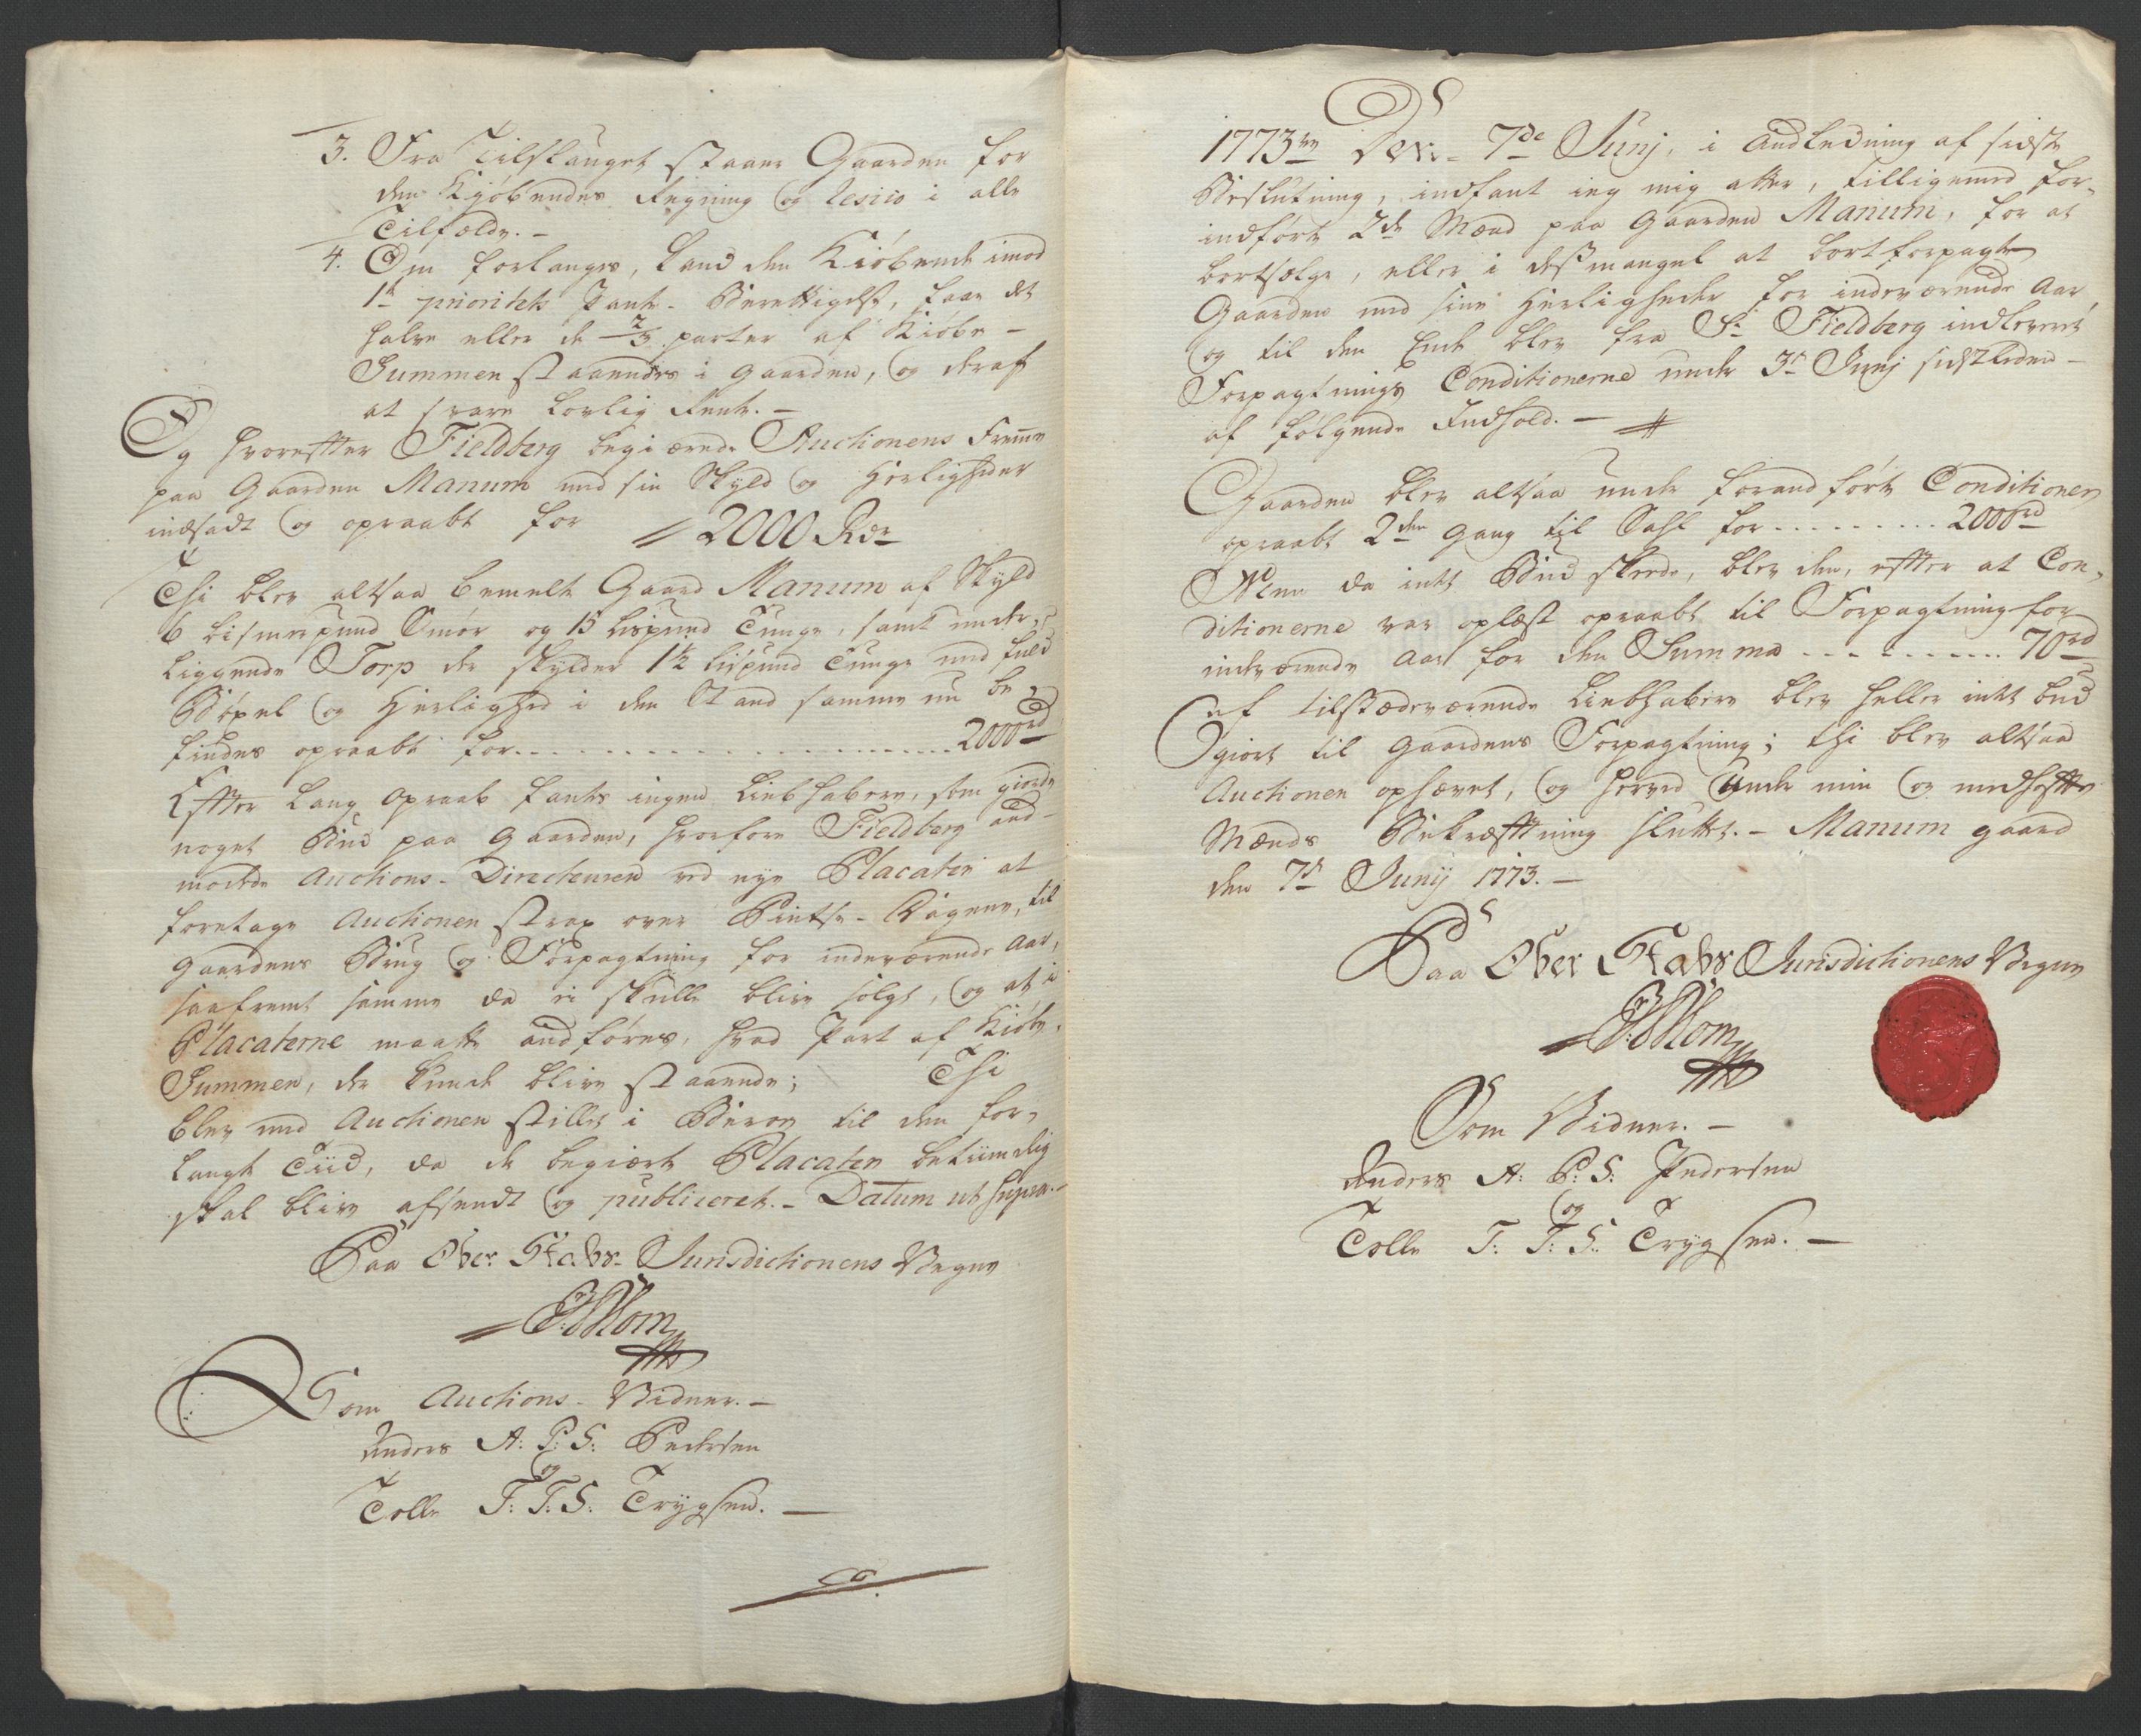 3. Fra Tilslauget staaer Gaarden for
den Kjøbendes Regning og resico i alle
Tilfælde. -
4. Om forlanges, kand den Kiøbende imod
1te prioritets Pant-Berettigelse, faae det
halve eller de 2/3 parter af Kiøbe-
Summen staaendes i Gaarden, og deraf
at svare lovlig Rente. -
Og hvorefter Fieldberg begiærede Auctionens Fremme
paa Gaarden Manum med sin Skyld og Herligheder
indsadt og opraabt for
2000 Rdr
Thi blev altsaa bemelte Gaard Manum af Skyld
6 bismerpund Smør og 15 Lispund Tunge, samt under-
liggende Torp der skylder 1½ Lispund Tunge med fuld
Bøxel og Herlighed i den Stand samme nu be-
findes opraabt for . . . . . . . . . . 2000rd
Efter lang Opraab fantes ingen Liebhabere, som giorde
noget Bud paa Gaarden, hvorfore Fieldberg and-
modede Auctions-Directeuren ved nye Placater at
foretage Auctionen strax over Pintse-Dagene, til
Gaardens Brug og Forpagtning for indeværende Aar,
saafremt samme da ei skulle blive solgt, og at i
Placaterne maatte andføres, hvad Part af Kiøbe-
Summen, der kunde blive staaende; Thi
blev med Auctionen stillet i Beroe til den for-
langte Tiid, da de begiærte Placater betiimelig
skal blive afsendt og publiceret. - Datum ut supra. -
Paa Ober Stabs-Jurisdictionens Vegne
Som Auctions-Vidner. -
Anders A: P: S: Pedersen
og
Tolle T: T: S: Trygsen. -
1773 Den 7de Junj, i Andledning af sidste
Beslutning, indfant ieg mig atter, tilligemed for-
indførte 2de Mænd paa Gaarden Manum, for at
bortsælge, eller i desmangel at bortforpagte
Gaarden med sine Herligheder for indeværende Aar,
og til den Ende blev fra Sr Fieldberg indleveret
Forpagtnings Conditionerne under 3de Junj sidstleden -
af følgende Indhold. -
Gaarden blev altsaa under forandførte Conditioner
opraabt 2den Gang til Sahl for . . . . . . . . . 2000rd
Men da intet Bud skeede, blev den, efter at Con-
ditionerne var oplæst opraabt til Forpagtning for
indeværende Aar for den Summa . . . . . . . . . 70rd
af tilstædeværende Liebhabere blev heller intet bud
giort til Gaardens Forpagtning; thi blev altsaa
Auctionen ophævet, og herved under min og medhafte
Mænds Bekræftning sluttet. - Manum gaard
den 7de Junij 1773. -
Paa Ober Stabs Jurisdictionens Vegne
Som Vidner. -
Anders A: P: S: Pedersen
og
Tolle T: T: S: Trygsen. -